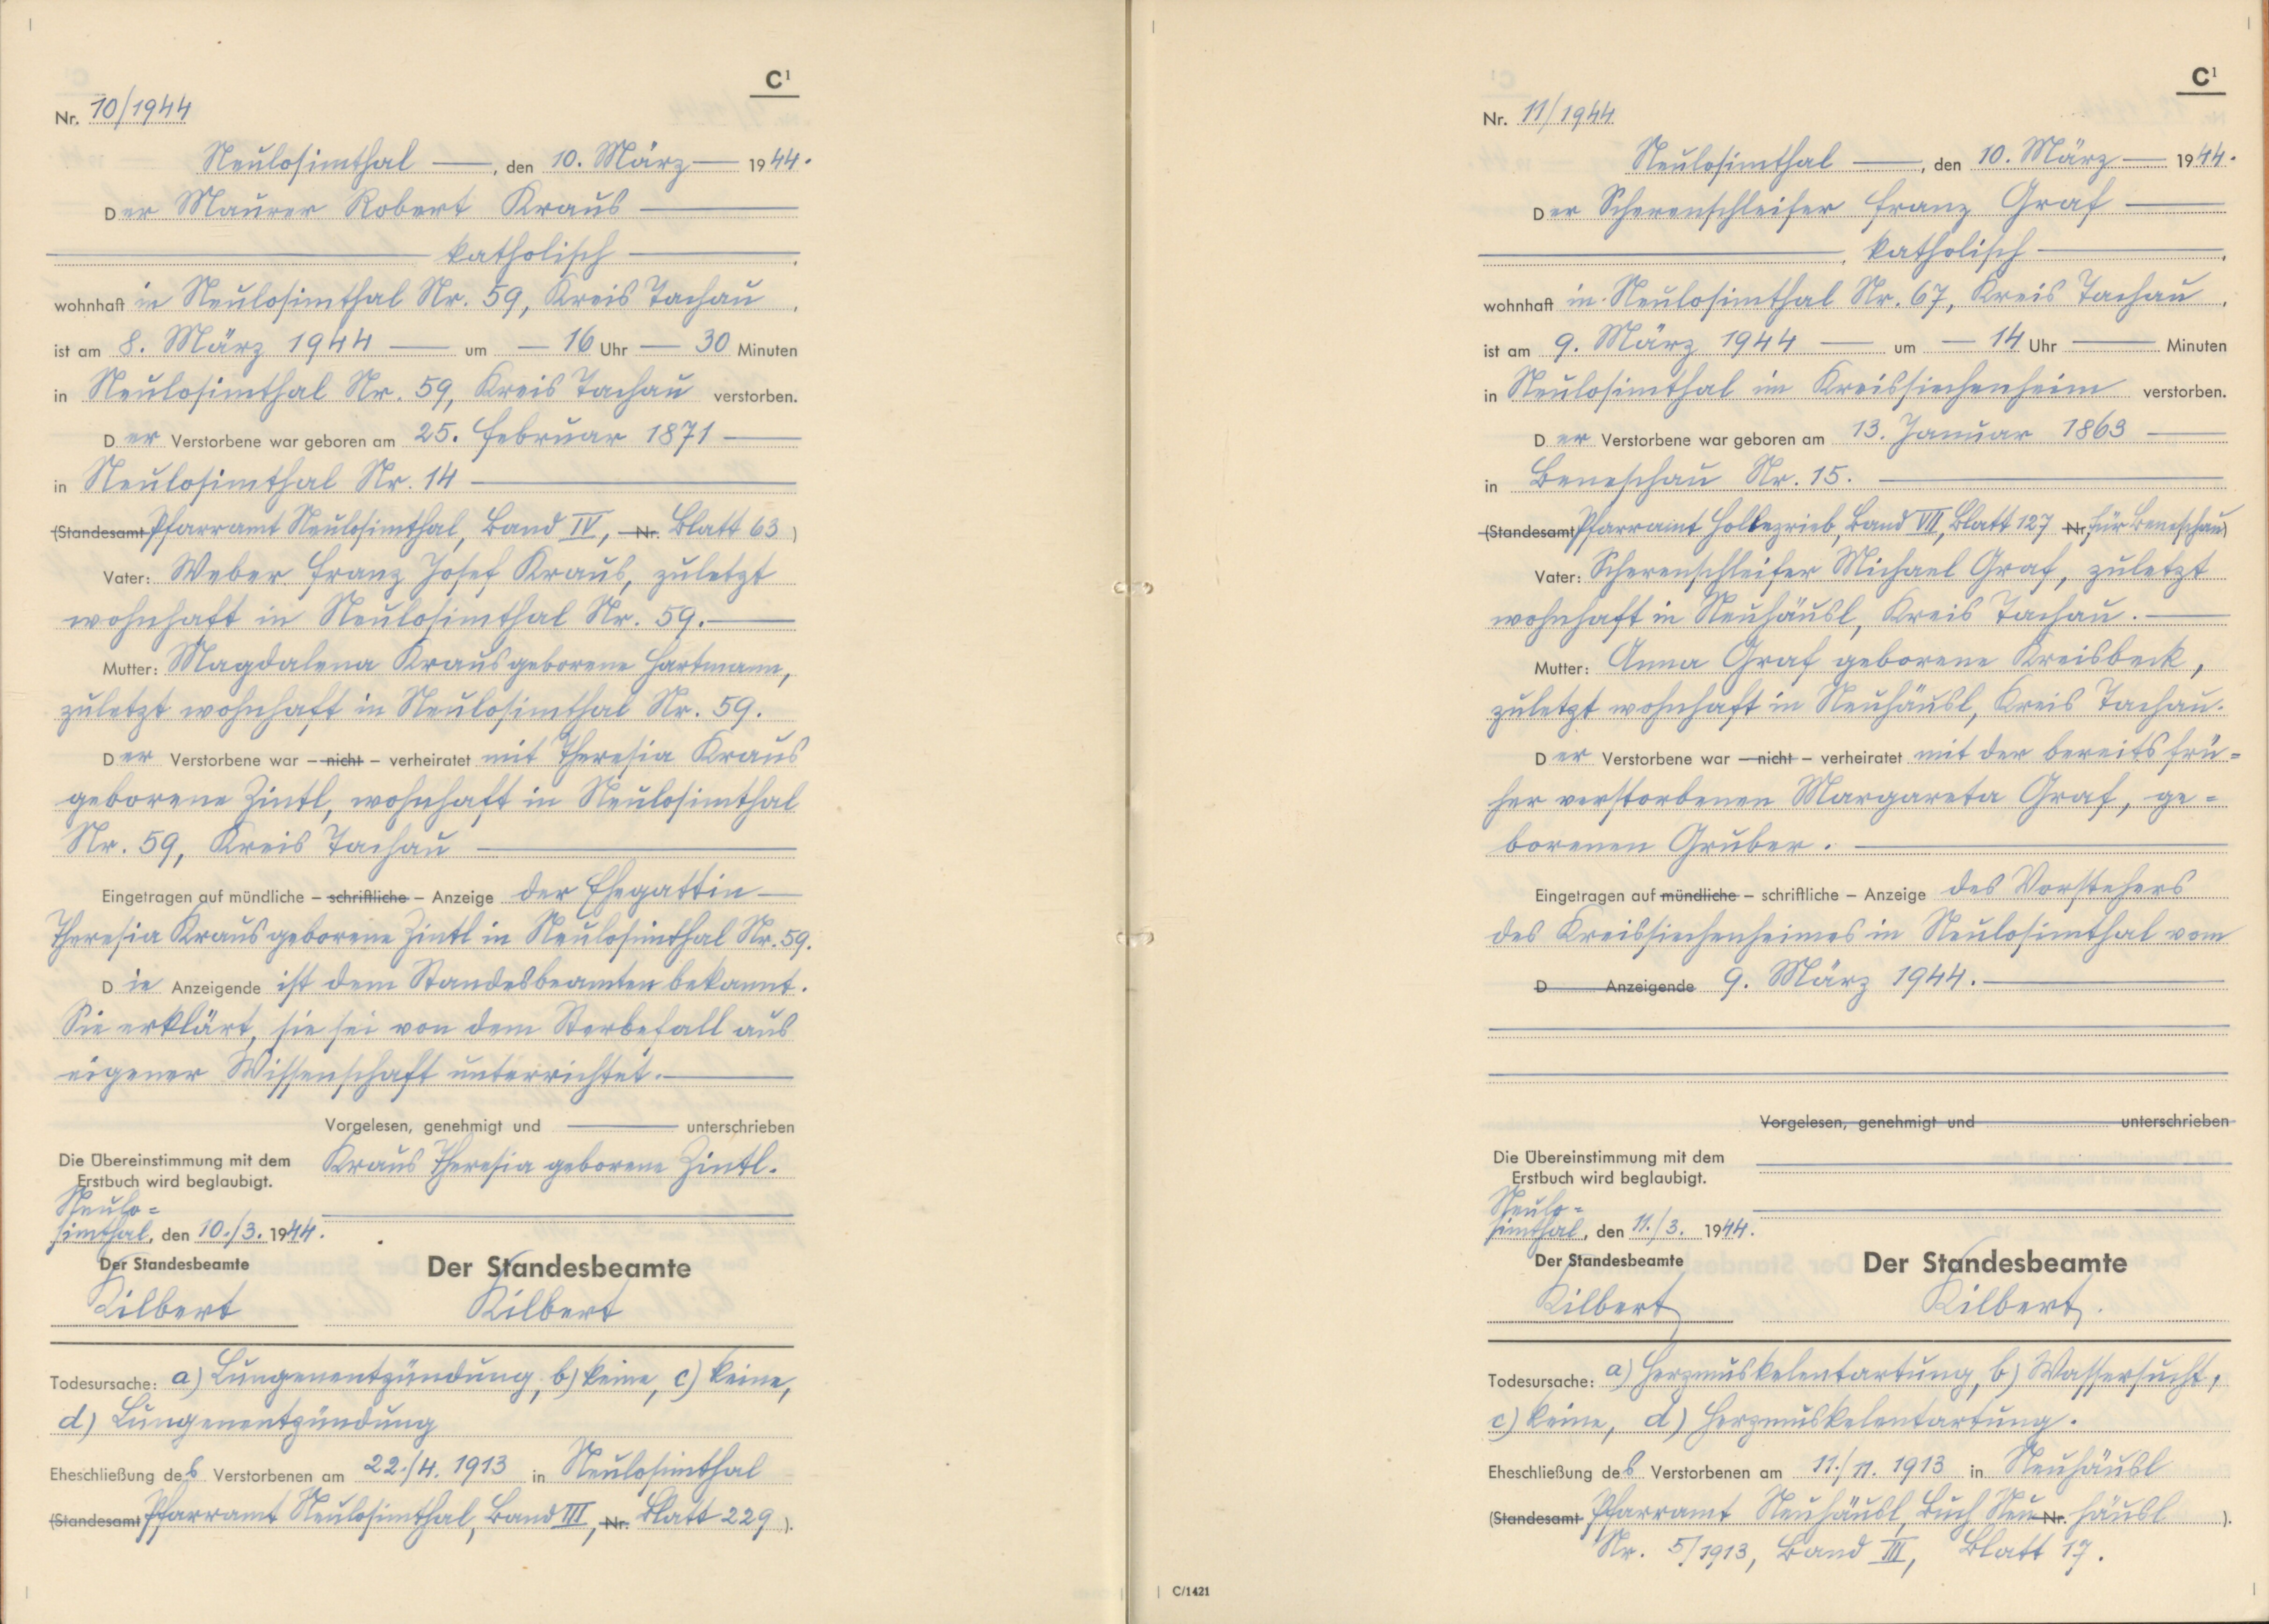 C¹
Nr. 10/1944
Neulosimthal —, den 10. März — 1944.
Der Maurer Robert Kraus —
— katholisch —.
wohnhaft in Neulosimthal Nr. 59, Kreis Tachau,
ist am 8. März 1944 — um — 16 Uhr — 30 Minuten
in Neulosimthal Nr. 59, Kreis Tachau verstorben.
Der Verstorbene war geboren am 25. Februar 1871 —
in Neulosimthal Nr. 14 —
(Standesamt Pfarramt Neulosimthal, Band IV, Nr. Blatt 63)
Vater: Weber Franz Josef Kraus, zuletzt
wohnhaft in Neulosimthal Nr. 59. —
Mutter: Magdalena Kraus geborene Hartmann,
zuletzt wohnhaft in Neulosimthal Nr. 59.
Der Verstorbene war – nicht – verheiratet mit Theresia Kraus
geborene Zintl, wohnhaft in Neulosimthal
Nr. 59, Kreis Tachau —
Eingetragen auf mündliche – schriftliche – Anzeige der Ehegattin —
Theresia Kraus geborene Zintl in Neulosimthal Nr. 59.
Die Anzeigende ist dem Standesbeamten bekannt.
Sie erklärt, sie sei von dem Sterbefall aus
eigener Wissenschaft unterrichtet. —
Vorgelesen, genehmigt und — unterschrieben
Kraus Theresia geborene Zintl.
Die Übereinstimmung mit dem
Erstbuch wird beglaubigt.
Neulo=
simthal, den 10./3. 1944.
Der Standesbeamte
Kilbert
Der Standesbeamte
Kilbert
Todesursache: a) Lungenentzündung, b) keine, c) keine,
d) Lungenentzündung
Eheschließung des Verstorbenen am 22./4. 1913 in Neulosimthal
(Standesamt Pfarramt Neulosimthal, Band III, Nr. Blatt 229).
C¹
Nr. 11/1944
Neulosimthal —, den 10. März — 1944.
Der Scherenschleifer Franz Graf —
—, katholisch —,
wohnhaft in Neulosimthal Nr. 67, Kreis Tachau,
ist am 9. März 1944 — um — 14 Uhr — Minuten
in Neulosimthal im Kreissiechenheim verstorben.
Der Verstorbene war geboren am 13. Januar 1863 —
in Beneschau Nr. 15. —
(Standesamt Pfarramt Hollezrieb, Band VII, Blatt 127 Nr. für Beneschau)
Vater: Scherenschleifer Michael Graf, zuletzt
wohnhaft in Neuhäusl, Kreis Tachau. —
Mutter: Anna Graf geborene Kreisbeck,
zuletzt wohnhaft in Neuhäusl, Kreis Tachau.
Der Verstorbene war – nicht – verheiratet mit der bereits frü=
her verstorbenen Margareta Graf, ge=
borenen Gruber. —
Eingetragen auf mündliche – schriftliche – Anzeige des Vorstehers
des Kreissiechenheimes in Neulosimthal vom
D Anzeigende 9. März 1944. —
Vorgelesen, genehmigt und — unterschrieben
Die Übereinstimmung mit dem
Erstbuch wird beglaubigt.
Neulo=
simthal, den 11./3. 1944.
Der Standesbeamte
Kilbert
Der Standesbeamte
Kilbert.
Todesursache: a) Herzmuskelentartung, b) Wassersucht,
c) keine, d) Herzmuskelentartung.
Eheschließung des Verstorbenen am 11./11. 1913 in Neuhäusl
(Standesamt Pfarramt Neuhäusl, Buch Neu Nr. häusl).
Nr. 5/1913, Band III, Blatt 17.
C/1421